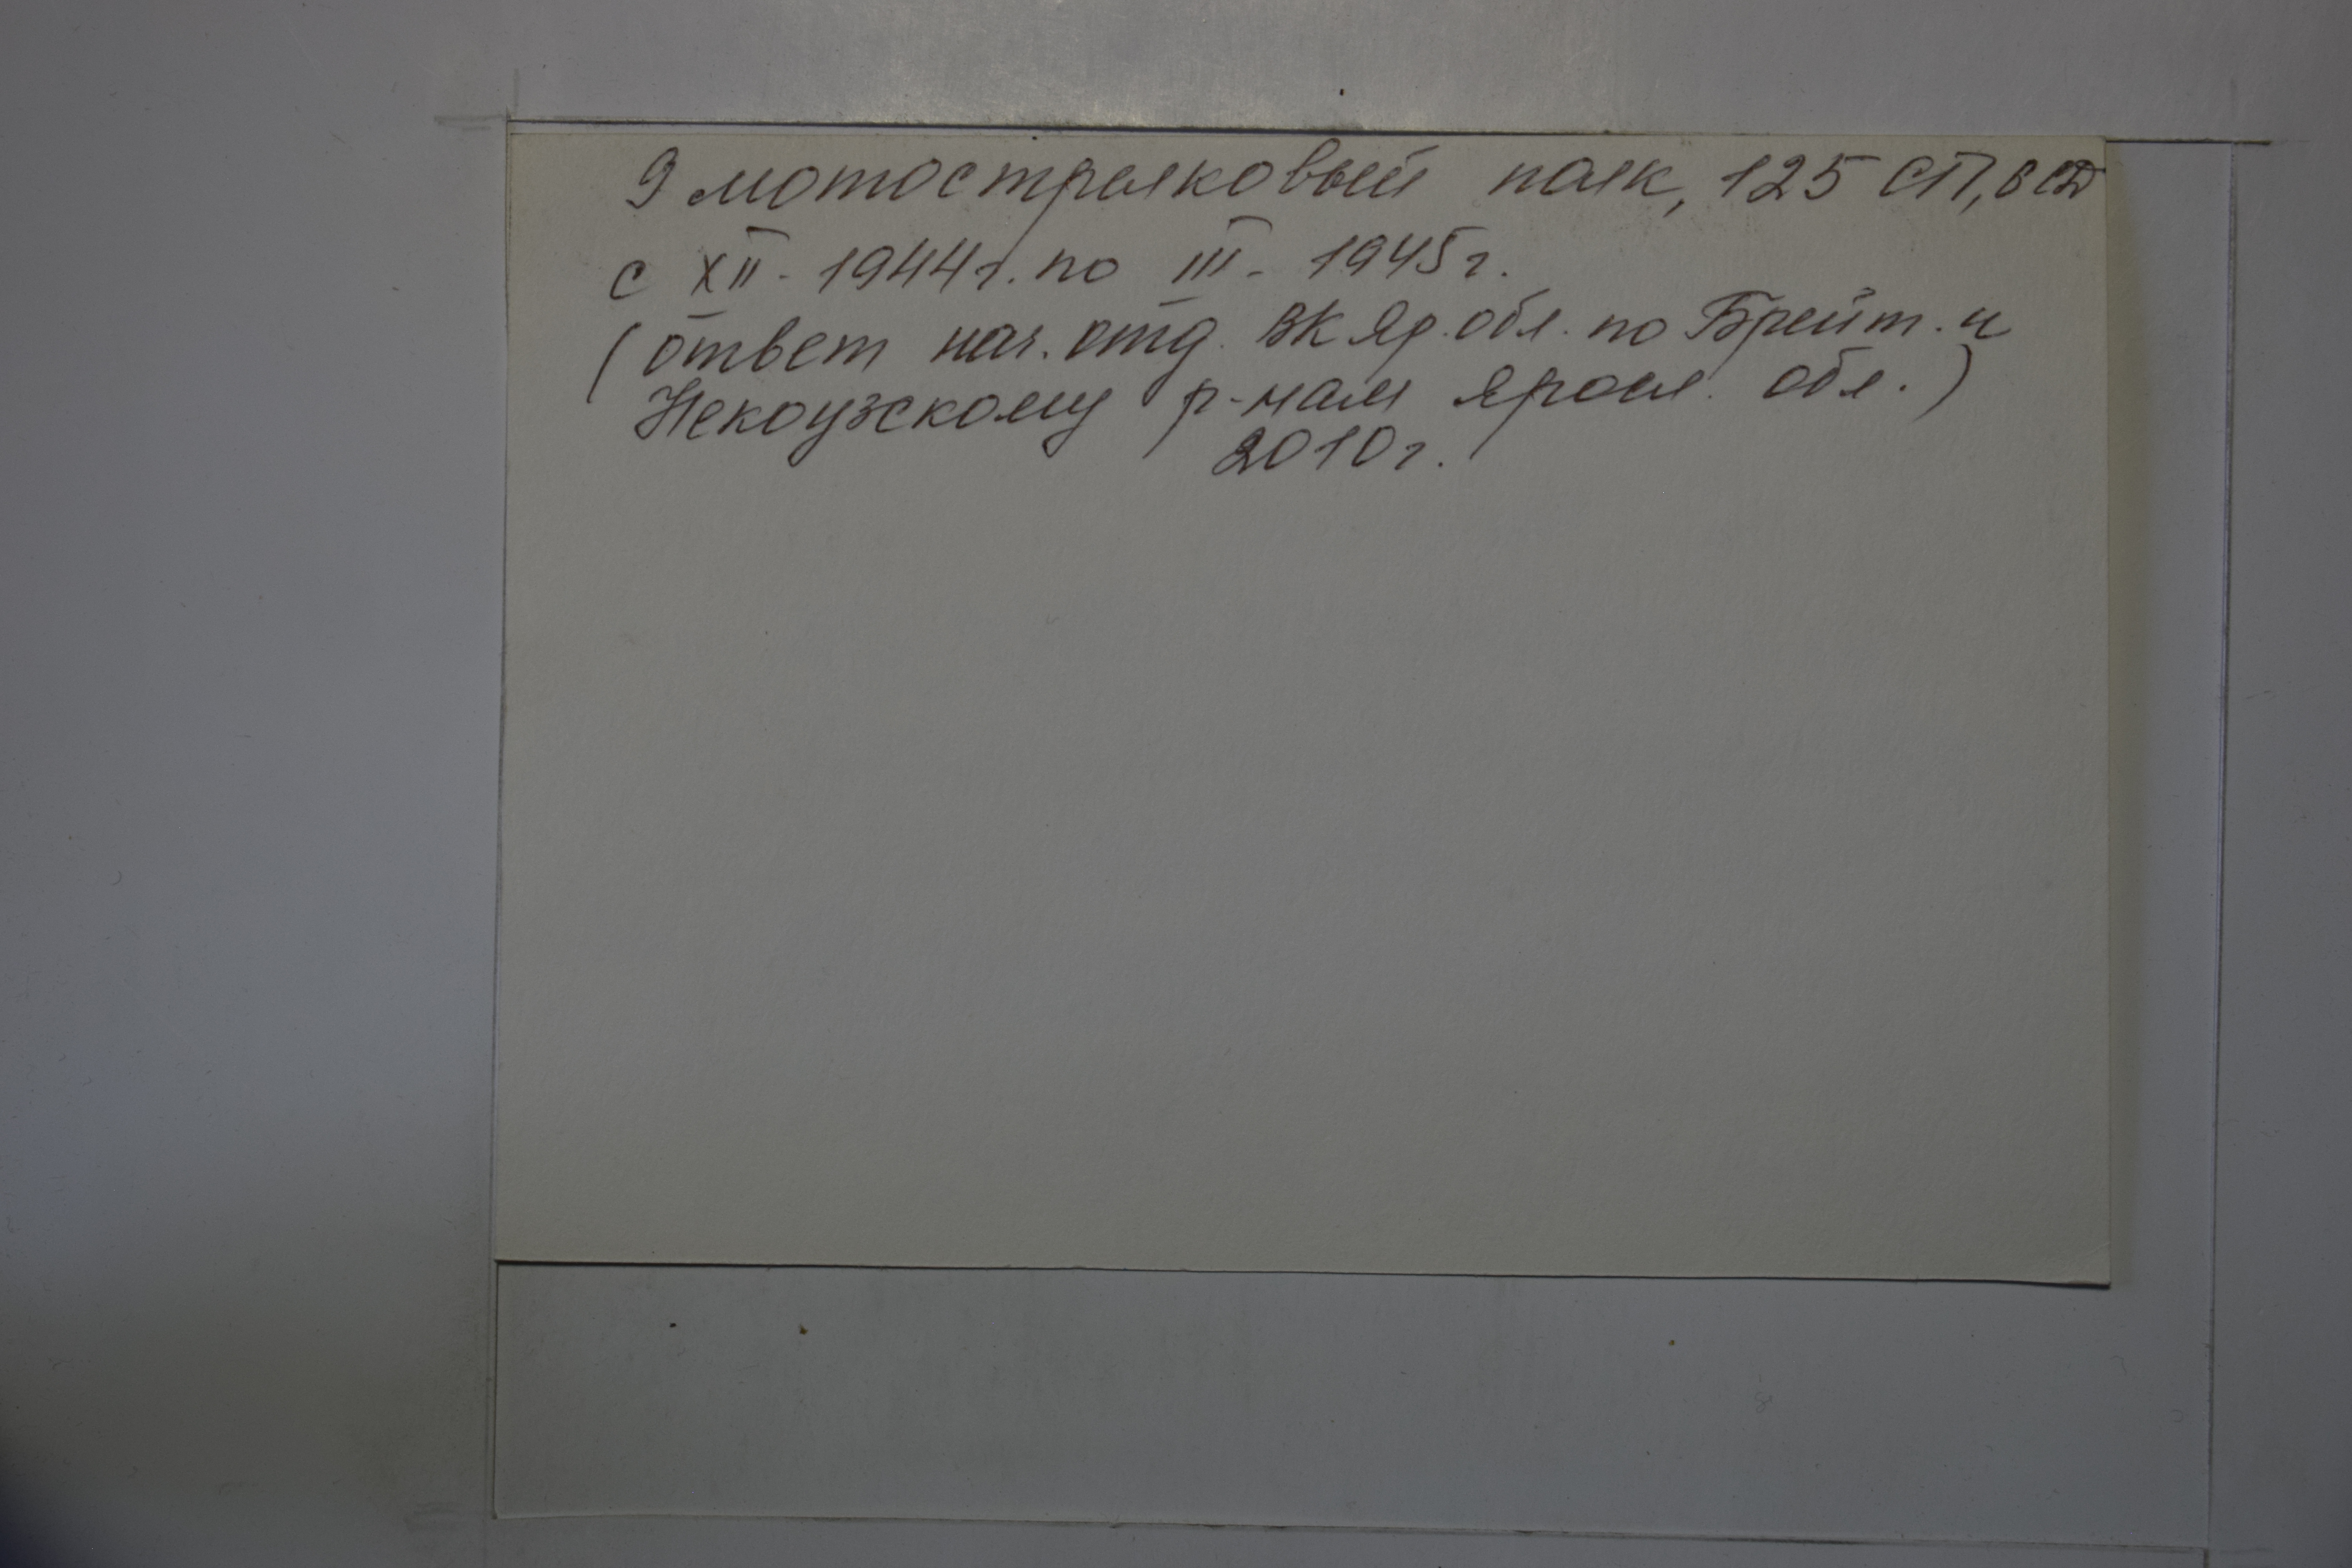 9 мотострелковый полк, 125 СП, 6 СД
с XII - 1944 г. по III - 1945 г.
(ответ нач. отд. ВК Яр. обл. по Брейт. и
Некоузскому р-нам Яросл. обл.)
2010 г.